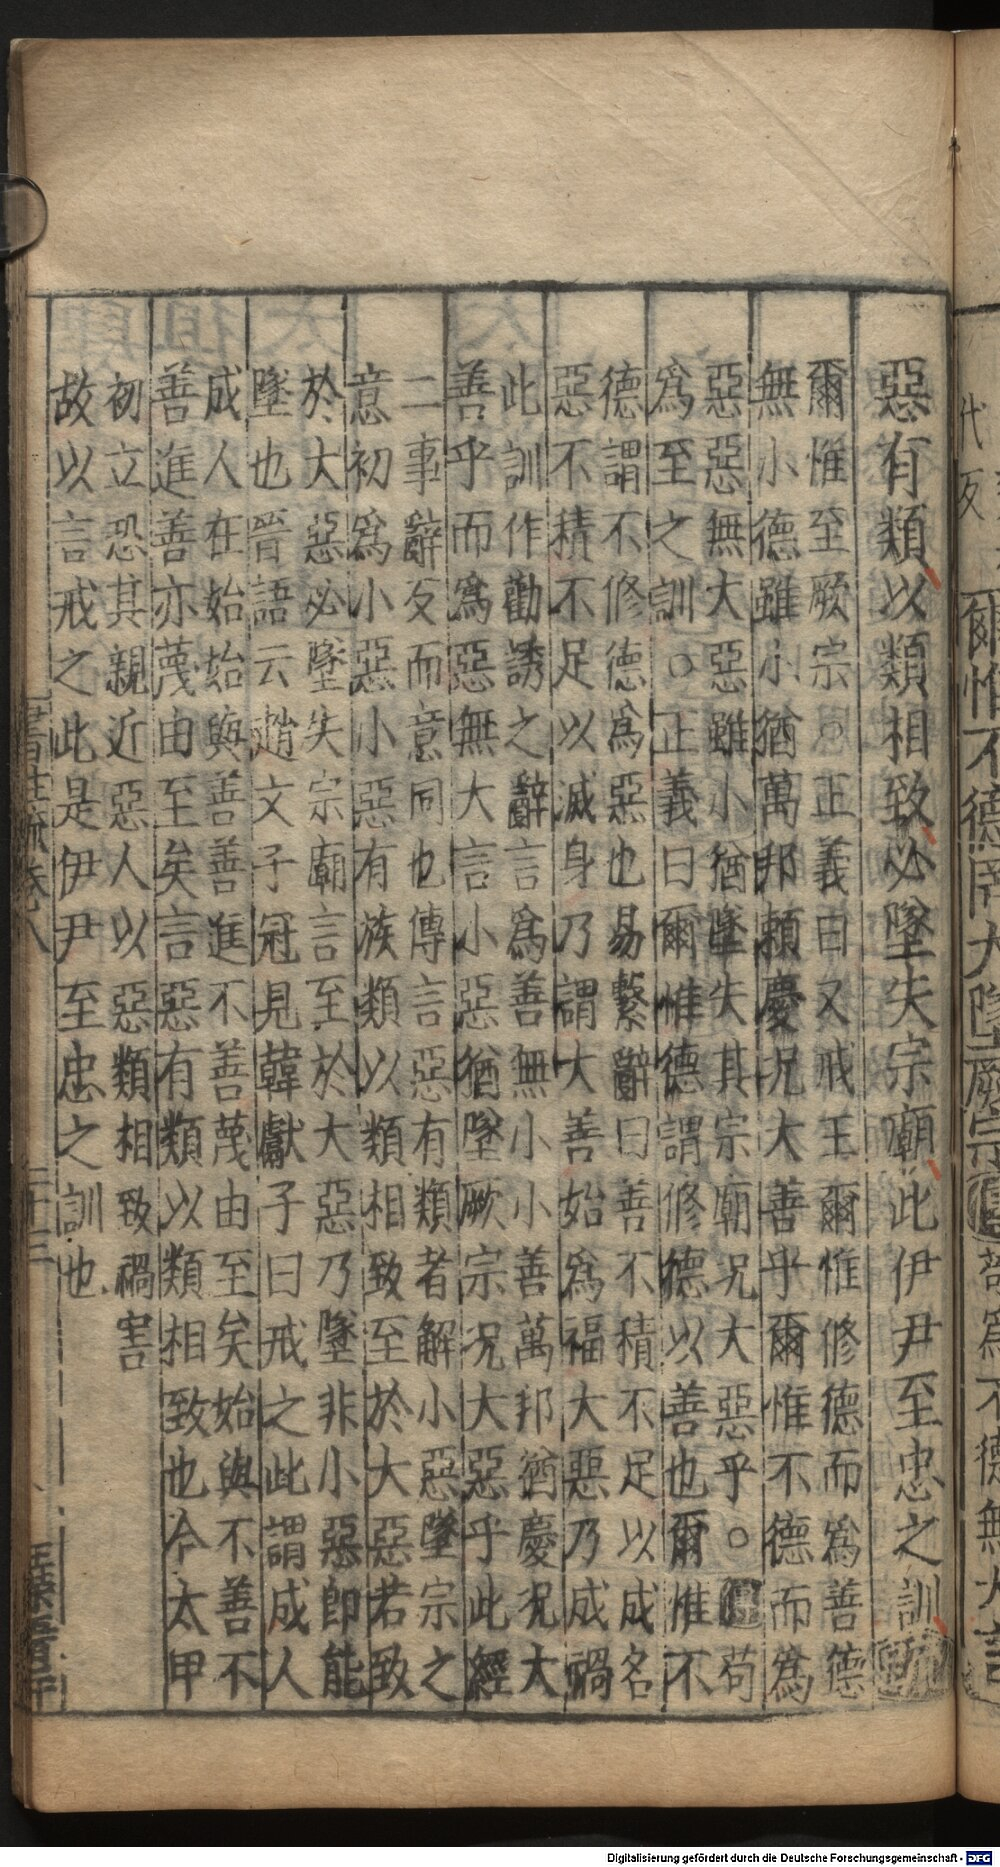 惡有類以類相致必墜失宗廟此伊尹至忠之訓疏
爾惟至厥宗○正義曰又戒王爾惟修德而為善德
無小德雖小猶萬邦賴慶況大善乎爾惟不德而為
惡惡無大惡雖小猶墜失其宗廟況大惡乎○傳苟
為至之訓○正義曰爾惟德謂修德以善也爾惟不
德謂不修德為惡也易繫辭曰善不積不足以成名
惡不積不足以滅身乃謂大善始為福大惡乃成禍
此訓作勸誘之辭言為善無小小善萬邦猶慶況大
善乎而為惡無大言小惡猶墜厥宗況大惡乎此經
二事辭反而意同也傳言惡有類者解小惡墜宗之
意初為小惡小惡有族類以類相致至於大惡若致
於大惡必墜失宗廟言至於大惡乃墜非小惡即能
墜也晉語云趙文子冠見韓獻子曰戒之此謂成人
成人在始始與善善進不善蔑由至矣始與不善不
善進善亦蔑由至矣言惡有類以類相致也今太甲
初立恐其親近惡人以惡類相致禍害
故以言戒之此是伊尹至忠之訓也
書註疏卷八
二十三
爾惟不德罔大墜厥宗
苟為不德無大言
Digitalisierung gefördert durch die Deutsche Forschungsgemeinschaft - DFG